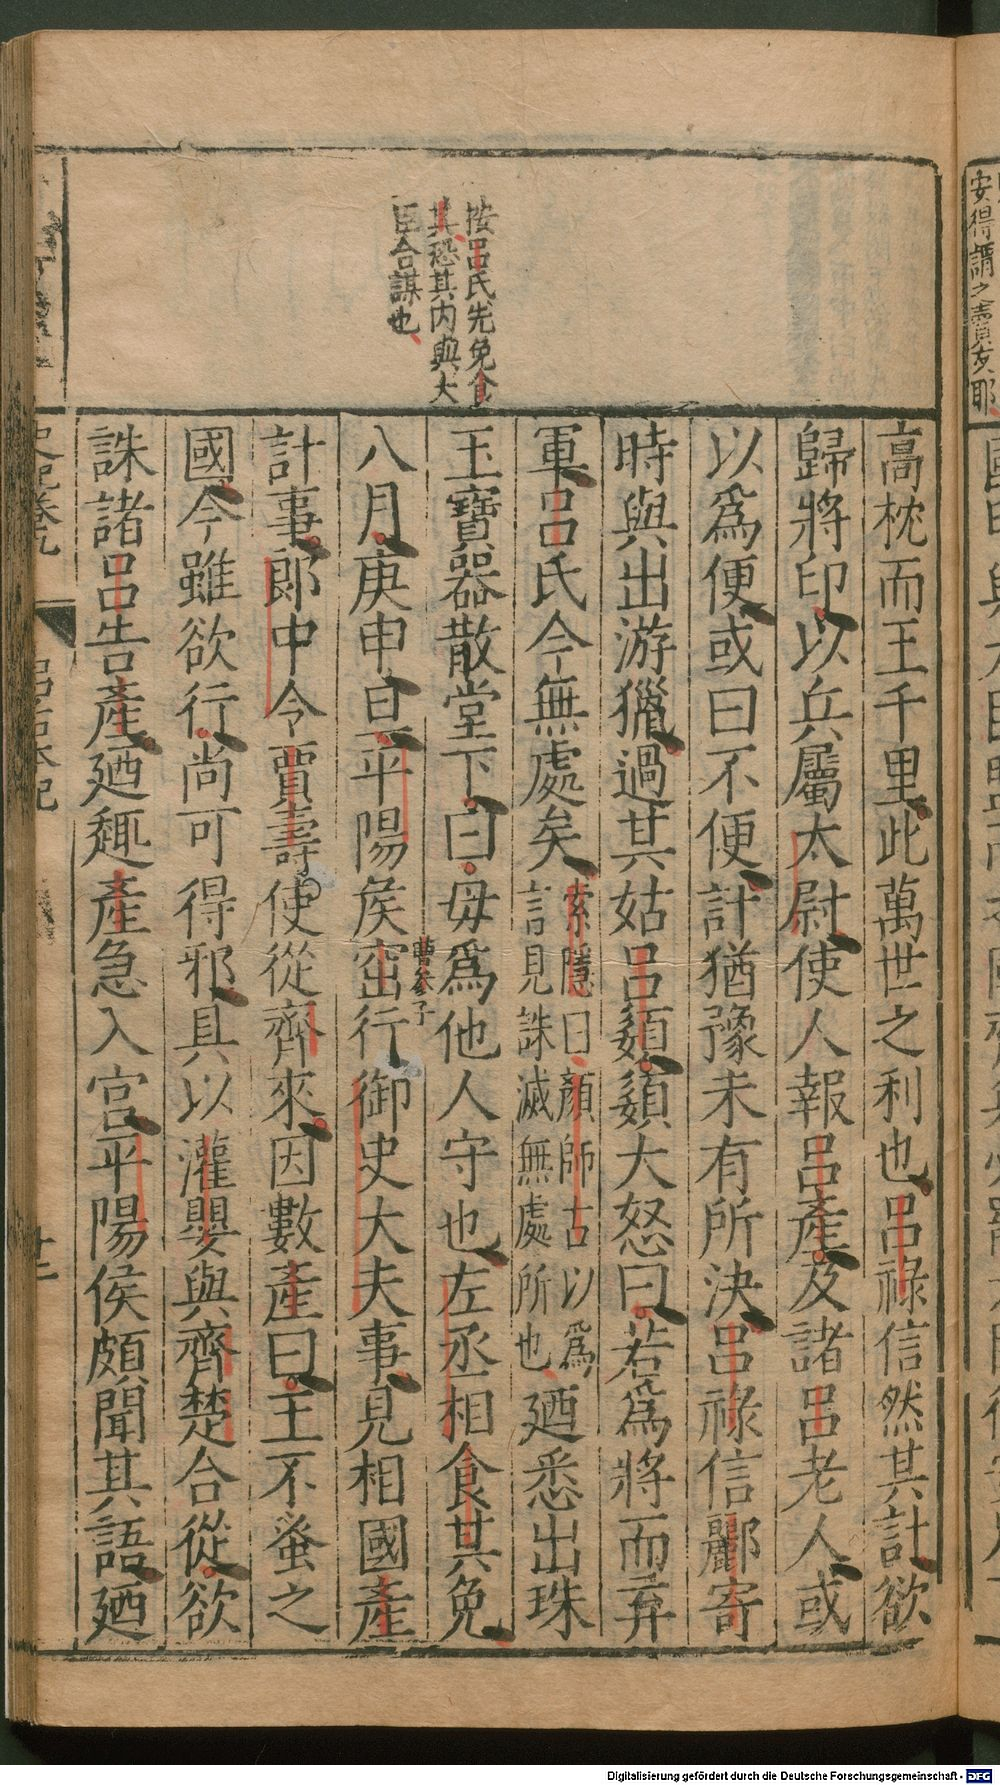 按呂氏先免食
其恐其内與大
臣合謀也
高枕而王千里此萬世之利也呂祿信然其計欲
歸將印以兵屬太尉使人報呂產及諸呂老人或
以爲便或曰不便計猶豫未有所決呂祿信酈寄
時與出游獵過其姑呂嬃嬃大怒曰若爲將而弃
軍呂氏今無處矣
索隱曰顏師古以爲
言見誅滅無處所也
廼悉出珠
玉寶器散堂下曰毋爲他人守也左丞相食其免
八月庚申旦平陽侯窋行御史大夫事見相國產
曹參子
計事郎中令賈壽使從齊來因數產曰王不蚤之
國今雖欲行尚可得邪具以灌嬰與齊楚合從欲
誅諸呂告產廼趣產急入宮平陽侯頗聞其語廼
史記卷九
呂后本紀
廿二
安得謂之賣友耶
Digitalisierung gefördert durch die Deutsche Forschungsgemeinschaft - DFG